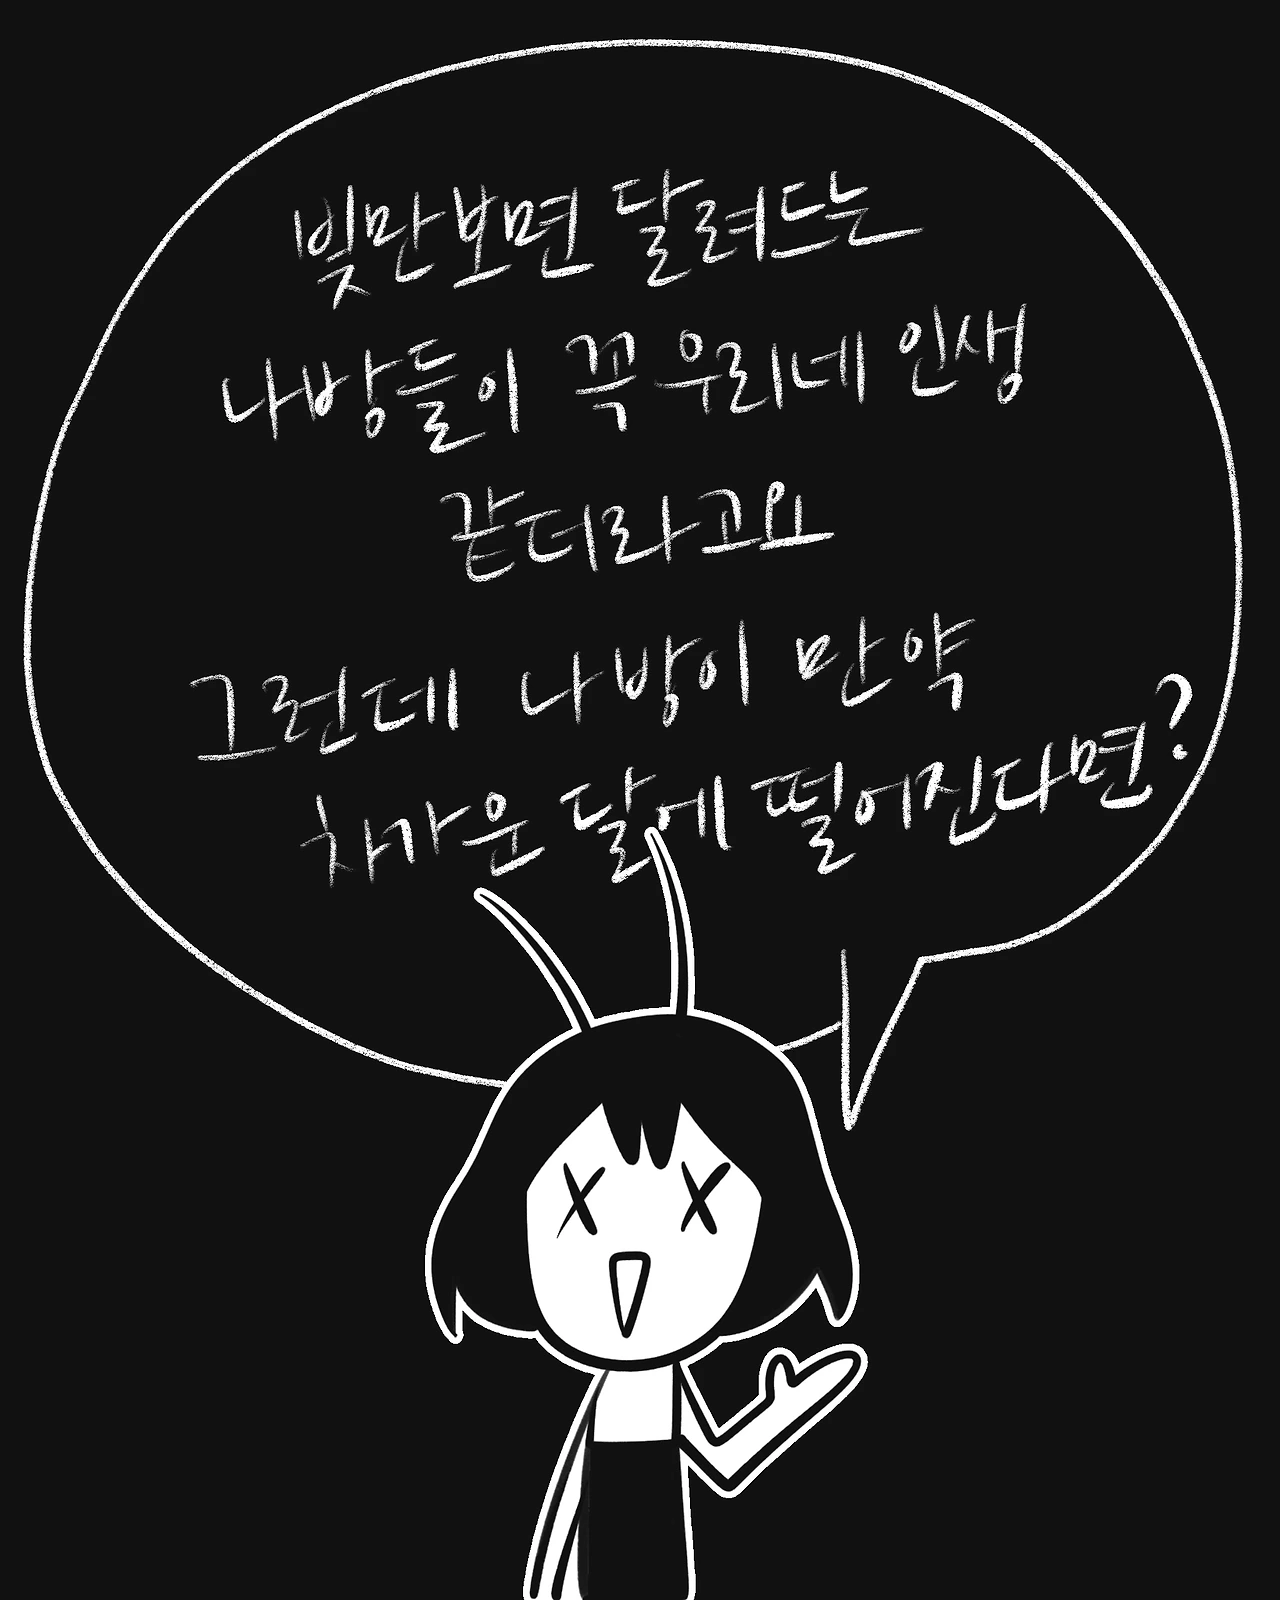 빛만보면 달려드는
나방들이 꼭 우리네 인생
같더라고요
그런데 나방이 만약
차가운 달에 떨어진다면?